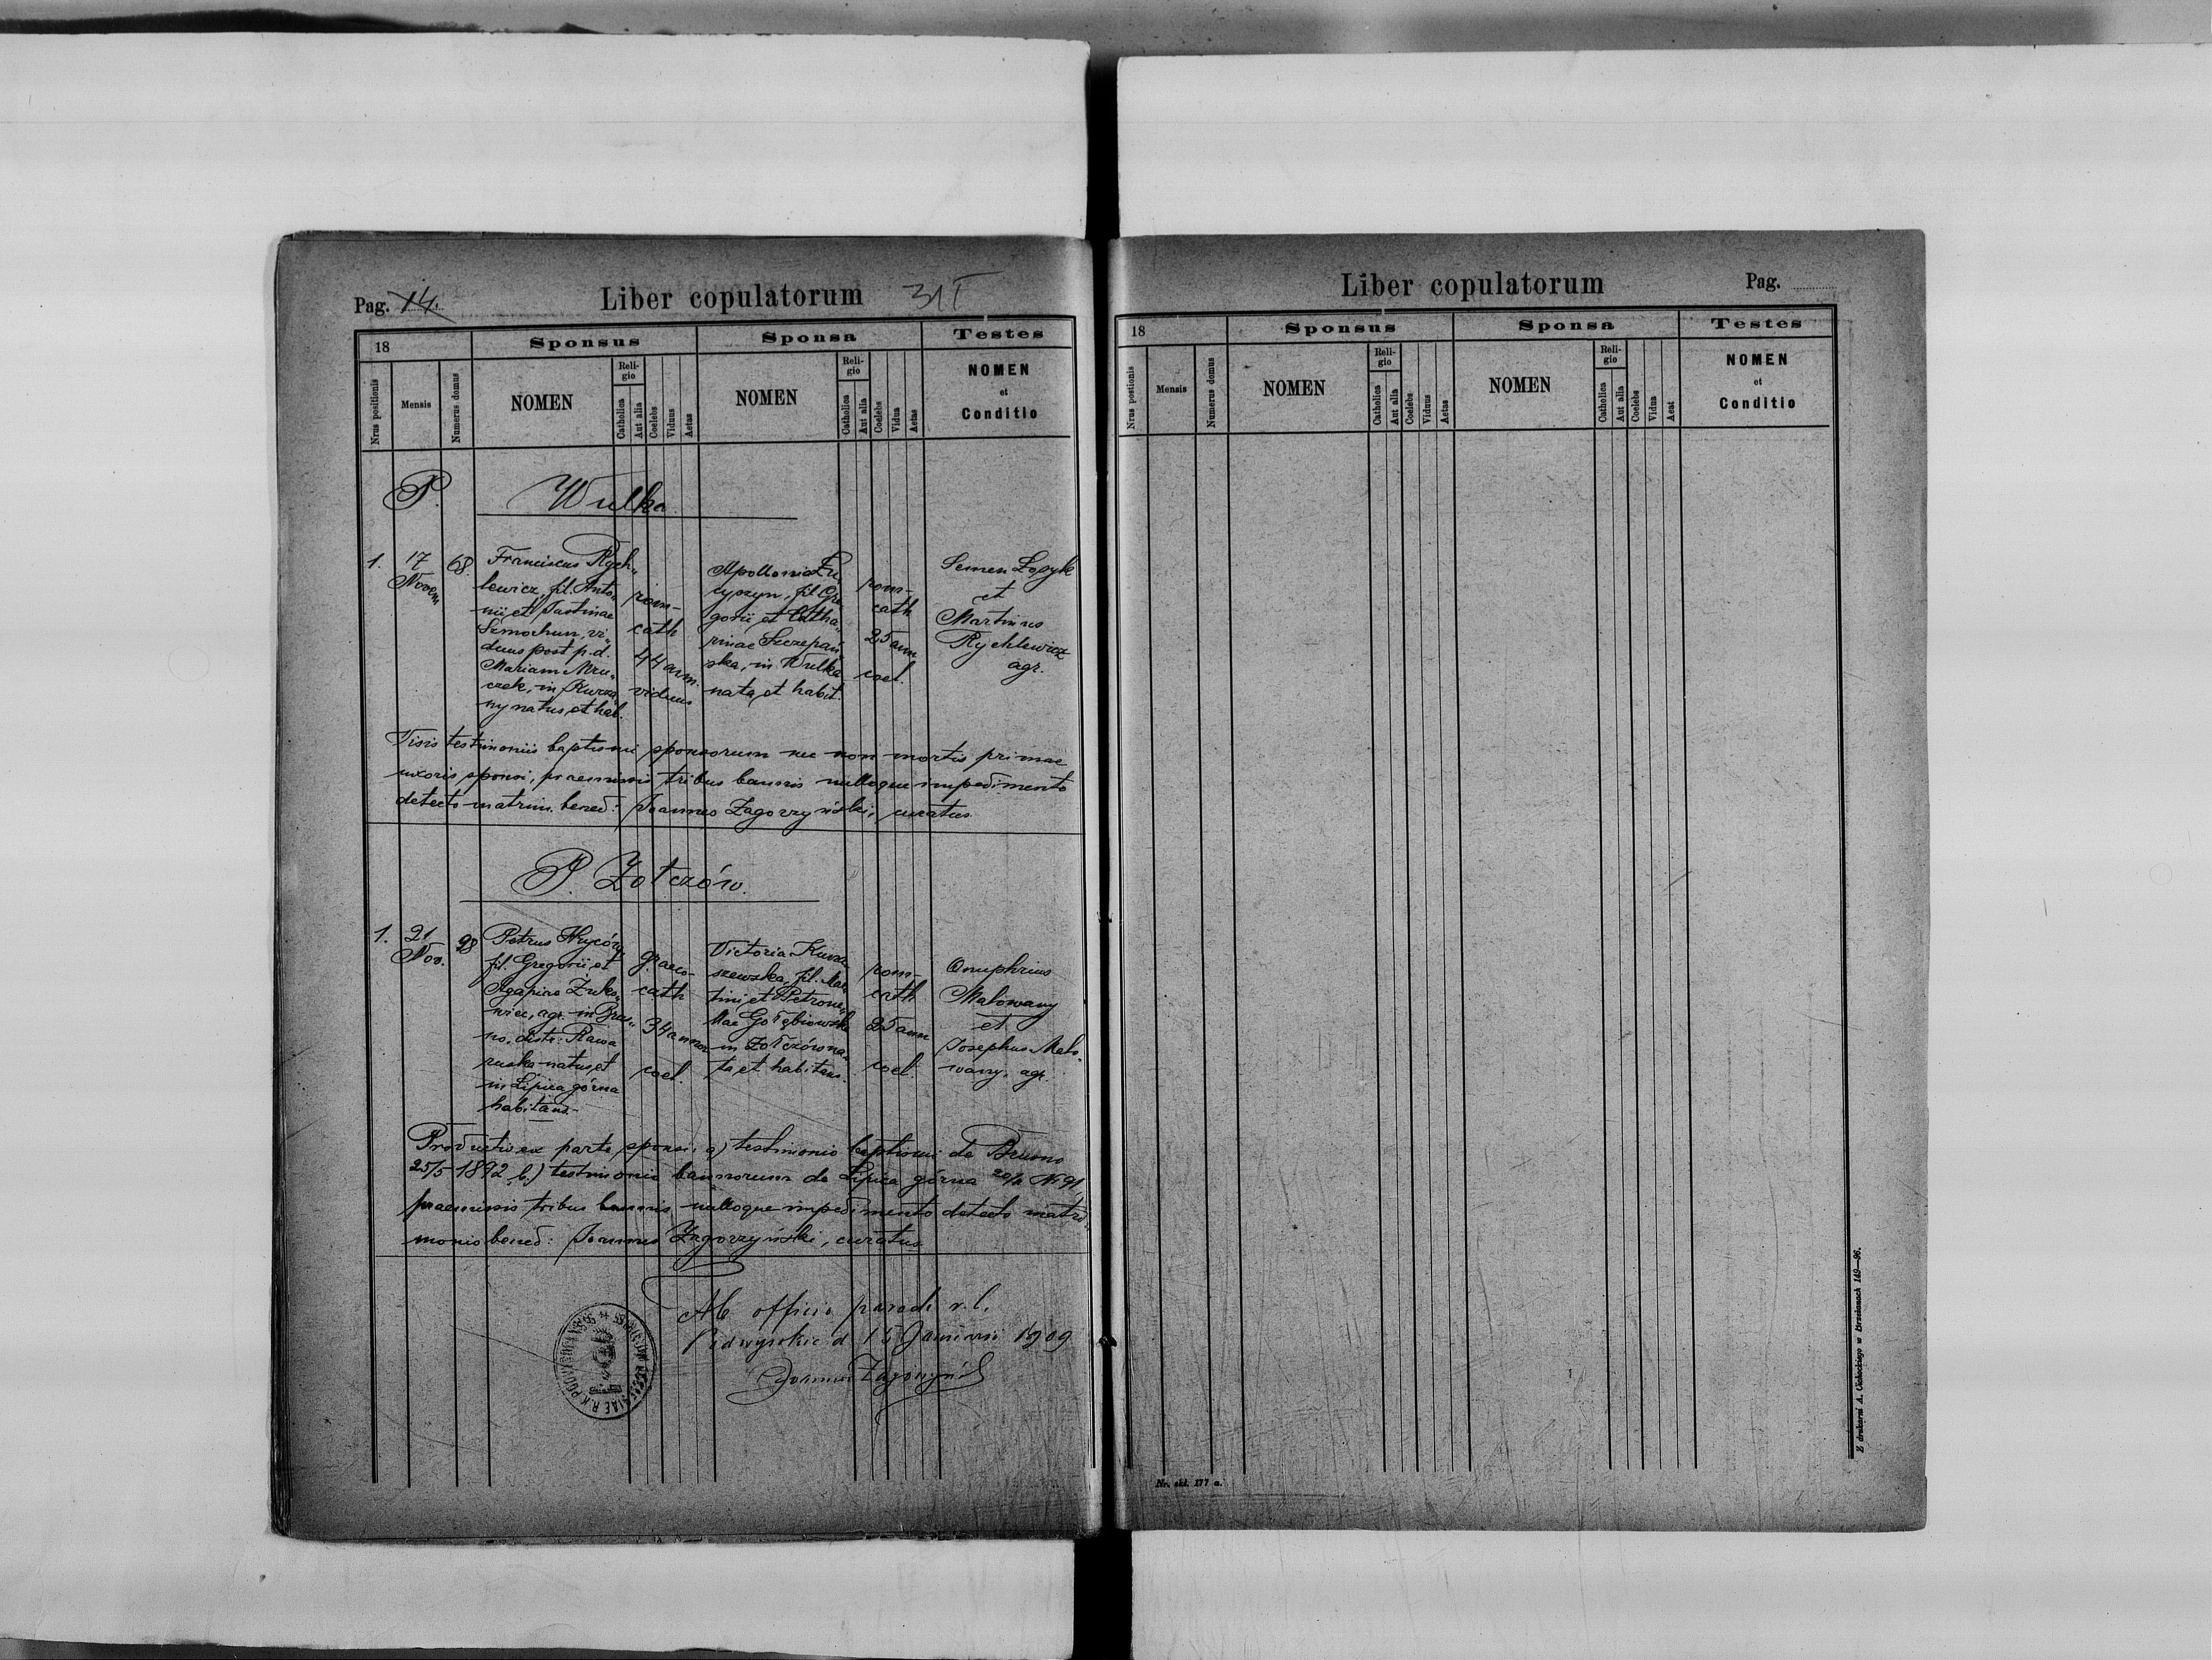 Pag. 14.
Liber copulatorum
31
18
Sponsus
Sponsa
Testes
Nrus positionis
Mensis
Numerus domus
NOMEN
Religio
Catholica
Aut alia
Coelebs
Viduus
Aetas
NOMEN
Religio
Catholica
Aut alia
Coelebs
Vidua
Aetas
NOMEN
et
Conditio
P. Wulka
1.
17
Novem
68.
Franciscus Rych-
lewicz, fil. Anto-
nii et Justinae
Semochun, vi-
duus post p. d.
Mariam Mru-
czek, in Kurza
ny natus, et hab.
rom-
cath
44 ann.
viduus
Apollonia
fil. Gre
gorii et Catha-
rinae Szczepań
ska, in Wulka
nata, et habit.
rom-
cath
25 ann
coel.
Semen Łozyk
et
Martinus
Rychlewicz
agr.
Visis testimoniis baptismi sponsorum nec non mortis primae
uxoris sponsi, praemissis tribus bannis nulloque impedimento
detecto matrim. bened: Joannes Zagorzyński, curatus
P. Żołczów.
1.
21
Nov.
28
Petrus Hryców
fil. Gregorii et
Agapiae Żuko-
wiec, agr. in
no. distr: Rawa
ruska natus, et
in Lipica górna
habitans.
graeco-
cath
34 annor
coel.
Victoria Kurza
szewska, fil. Mar
tini et Petrone-
llae Gołębiowska
in Żołczów na-
ta, et habitans.
rom-
cath
25 ann
coel.
Onuphrius
Malowany
et
Josephus Malo-
wany, agr.
Productis ex parte sponsi: a) testimonio baptismi de Bruno
25/5 1892, b.) testimonio bannorum de Lipica górna N 91,
praemissis tribus bannis nulloque impedimento detecto matri-
monio bened: Joannes Zagorzyński, curatus
Ab officio paroch r. l.
Podwysokie d 15 Januarii 1909
Joannes Zagórzyński
Liber copulatorum
Pag.
18
Sponsus
Sponsa
Testes
Nrus postionis
Mensis
Numerus domus
NOMEN
Religio
Catholica
Aut alia
Coelebs
Viduus
Aetas
NOMEN
Religio
Catholica
Aut alia
Coelebs
Vidua
Aeat
NOMEN
et
Conditio
Nr. skł. 177 a.
Z drukarni A. Cichockiego w Brzeżanach 149—96.